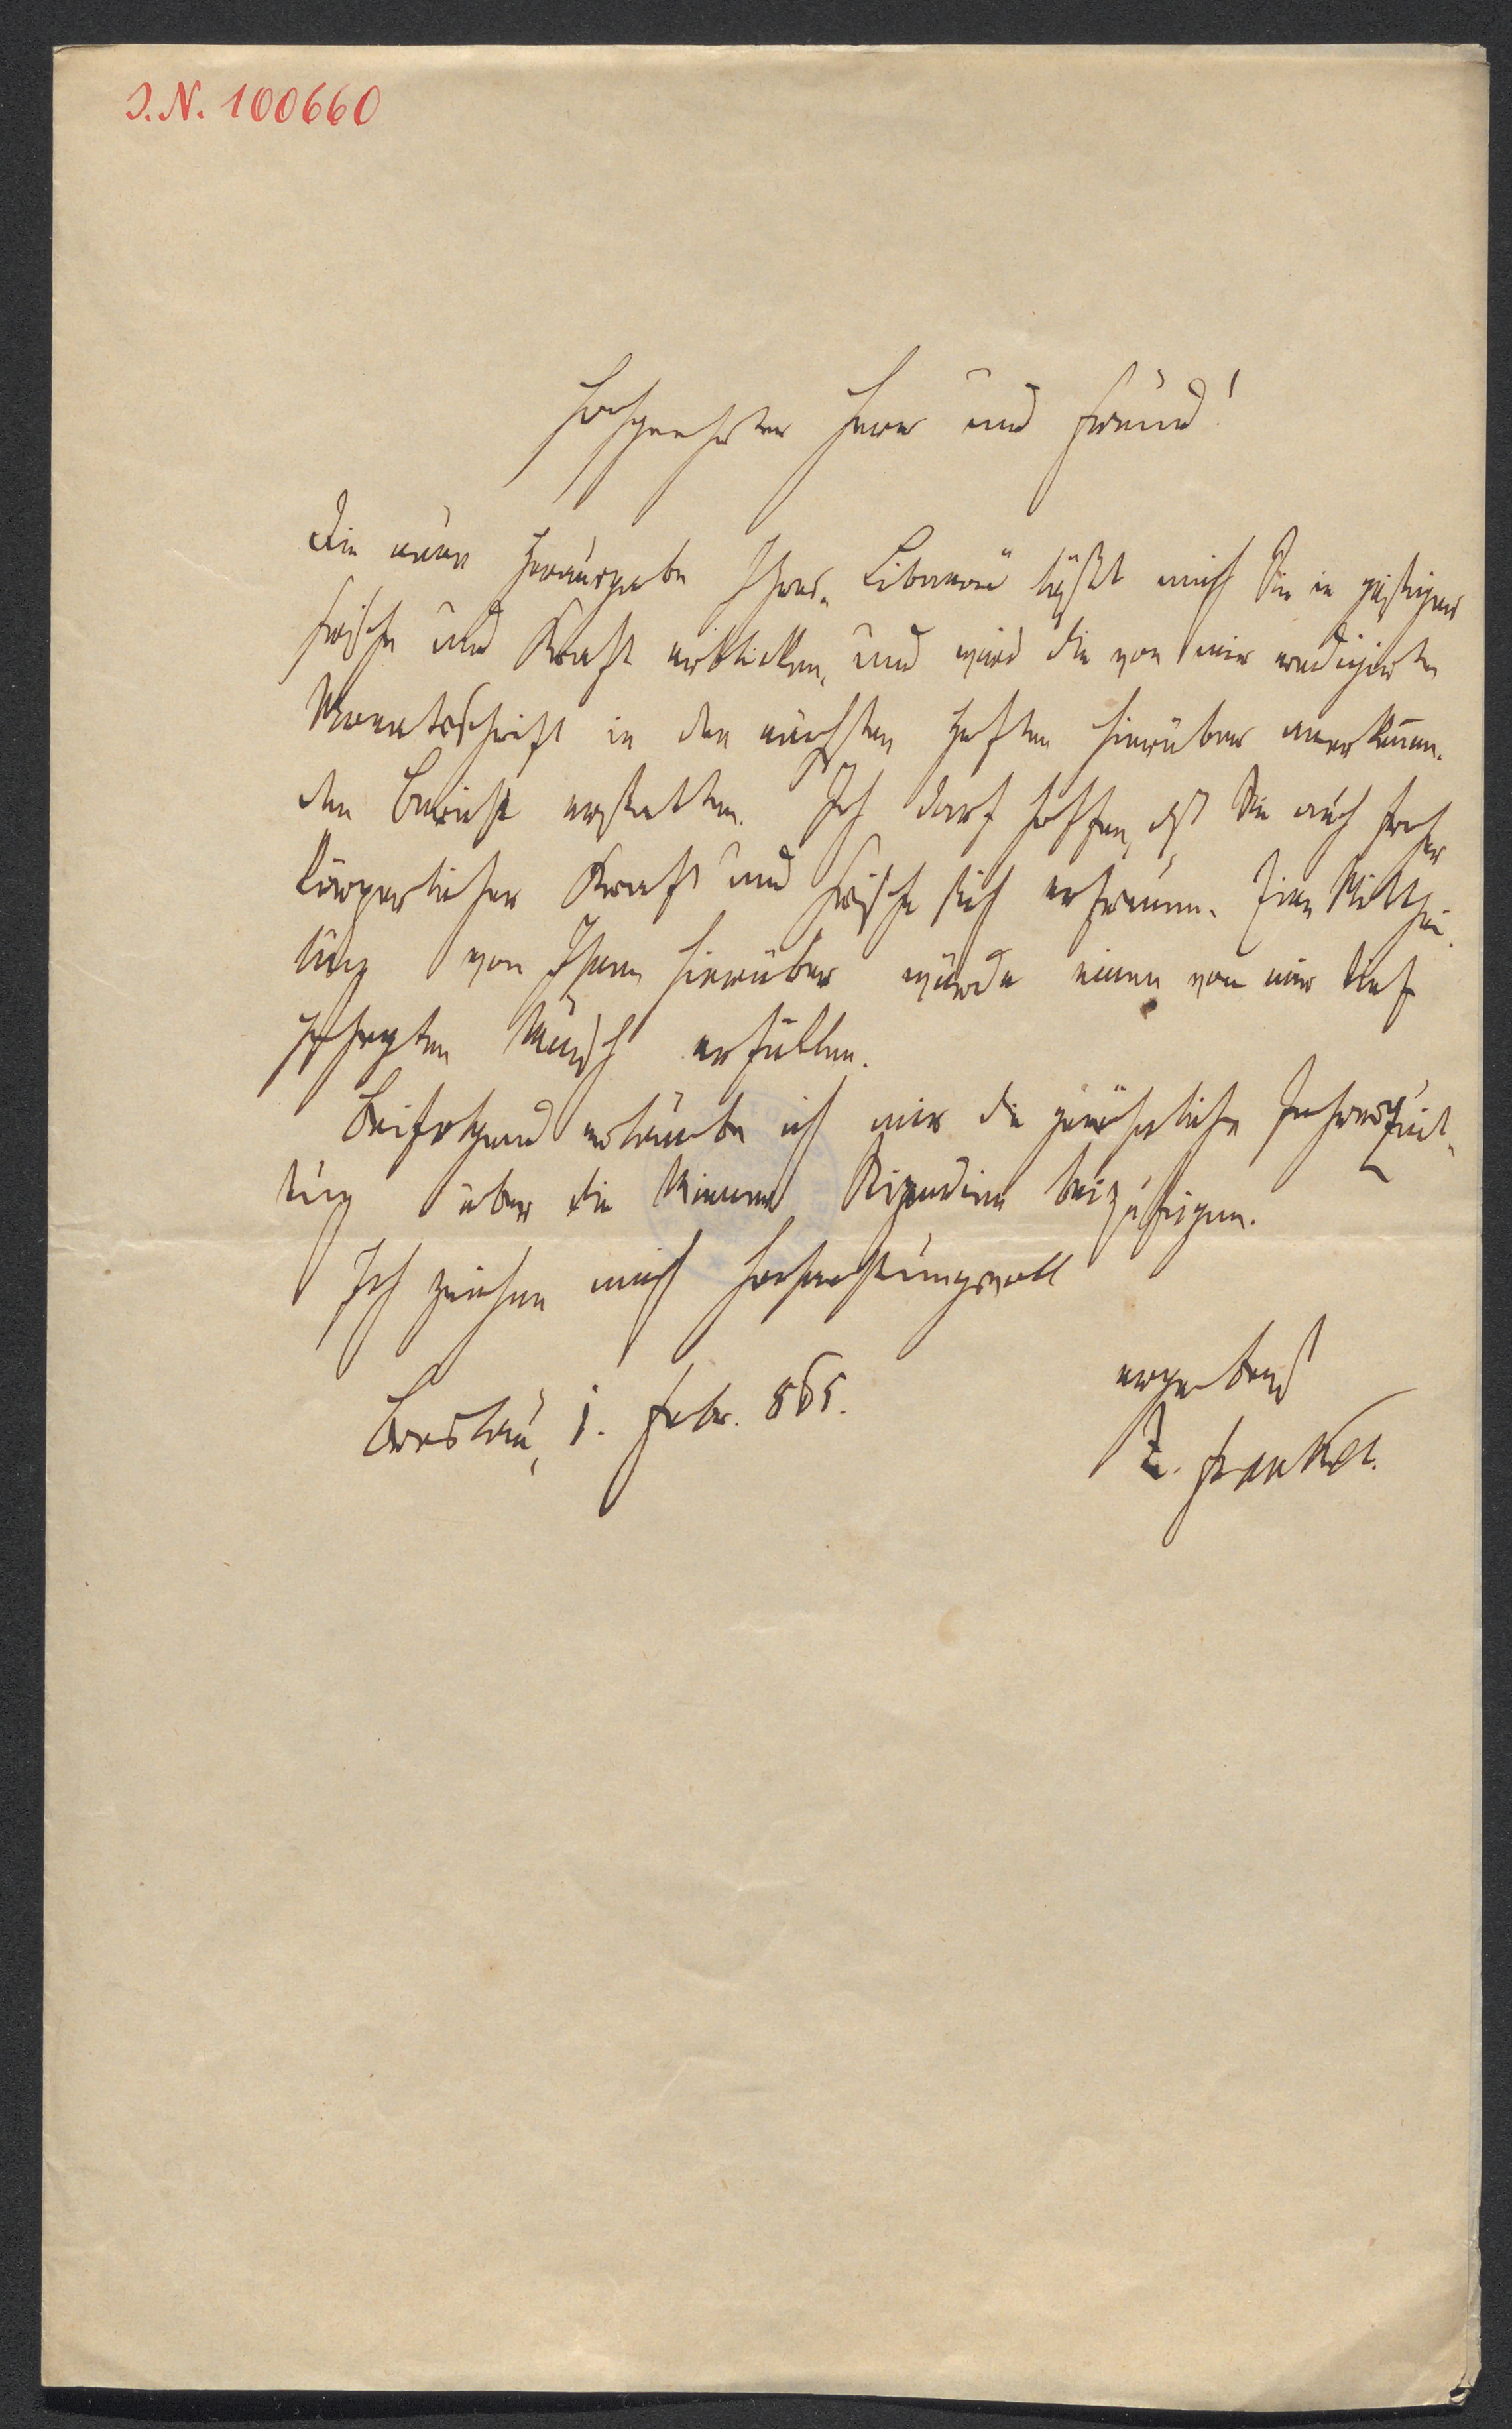 J.N. 100660
Hochgeehrter Herr und Freund!
Die neue Herausgabe Ihres „Libanon“ läßt mich Sie in geistiger
Frische und Kraft erblicken, und wird die von mir redigirte
Monatsschrift in den nächsten Heften hierüber anerkennen-
den Bericht erstatten. Ich darf hoffen, daß Sie auch froher
körperlicher Kraft und Frische sich erfreuen. Eine Mitthei-
lung von Ihnen hierüber würde einen von mir tief
gehegten Wunsch erfüllen.
Beifolgend erlaube ich mir die gewöhnliche Jahresquit-
tung über die Wiener Stipendien beizufügen.
Ich zeichne mich hochachtungsvoll
ergebenst
Breslau, 1. Febr. 865.
Z. Frankel.